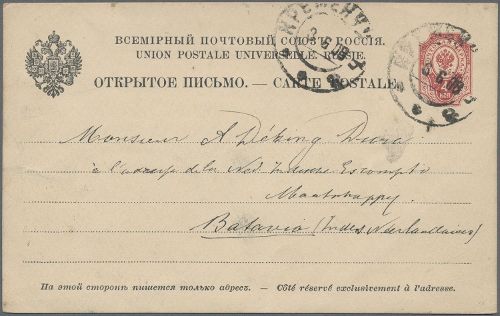 ВСЕМІРНЫЙ ПОЧТОВЫЙ СОЮЗ. РОССІЯ.
UNION POSTALE UNIVERSELLE. RUSSIE.
ОТКРЫТОЕ ПИСЬМО. — CARTE POSTALE.
КРЕМЕНЧУ
2 6 09
Monsieur A
à l'adresse de la Ned. Indische Escompto
Maatschappy
Batavia (Indes Neerlandaises)
На этой сторонѣ пишется только адресъ. — Côté réservé exclusivement à l'adresse.